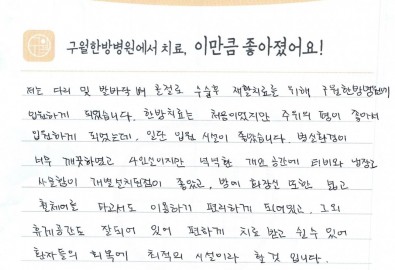 구월한방병원에서 치료, 이만큼 좋아졌어요!
저는 다리 및 발바닥 뼈 골절로 수술후 재활치료를 위해 구월한방병원에
입원하게 되었습니다. 한방치료는 처음이었지만 주위의 평이 좋아서
입원하게 되었는데, 일단 입원 시설이 좋았습니다. 병소환경이
너무 깨끗하였고 4인실이지만 넉넉한 개인공간에 티비와 냉장고
사물함이 개별설치된점이 좋았고, 방에 화장실 또한 넓고
휠체어를 타고서도 이용하기 편리하게 되어있고, 그외
휴게공간도 잘되어 있어 편하게 치료 받고 쉴수 있어
환자들의 회복에 최적의 시설이라 할 것 입니다.